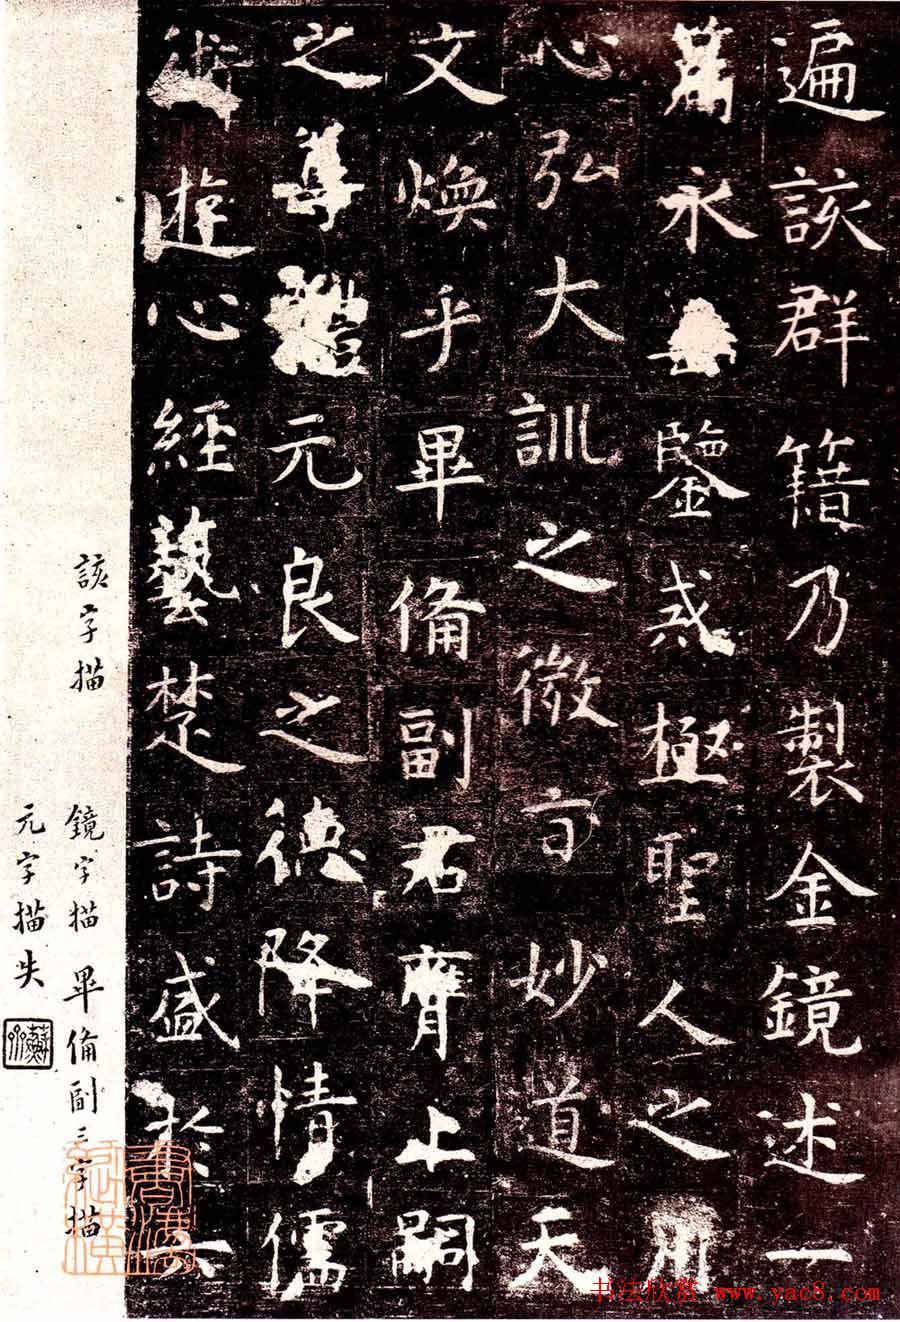 遍該群籍乃製金鏡述一
篇永鑒戒極聖人之用
心弘大訓之微旨妙道天
文煥乎畢備副君膺上嗣
之尊體元良之德降情儒
術遊心經藝楚詩盛於六
該字描
鏡字描 畢備副三字描
元字描失
书法欣赏 www.yac8.com